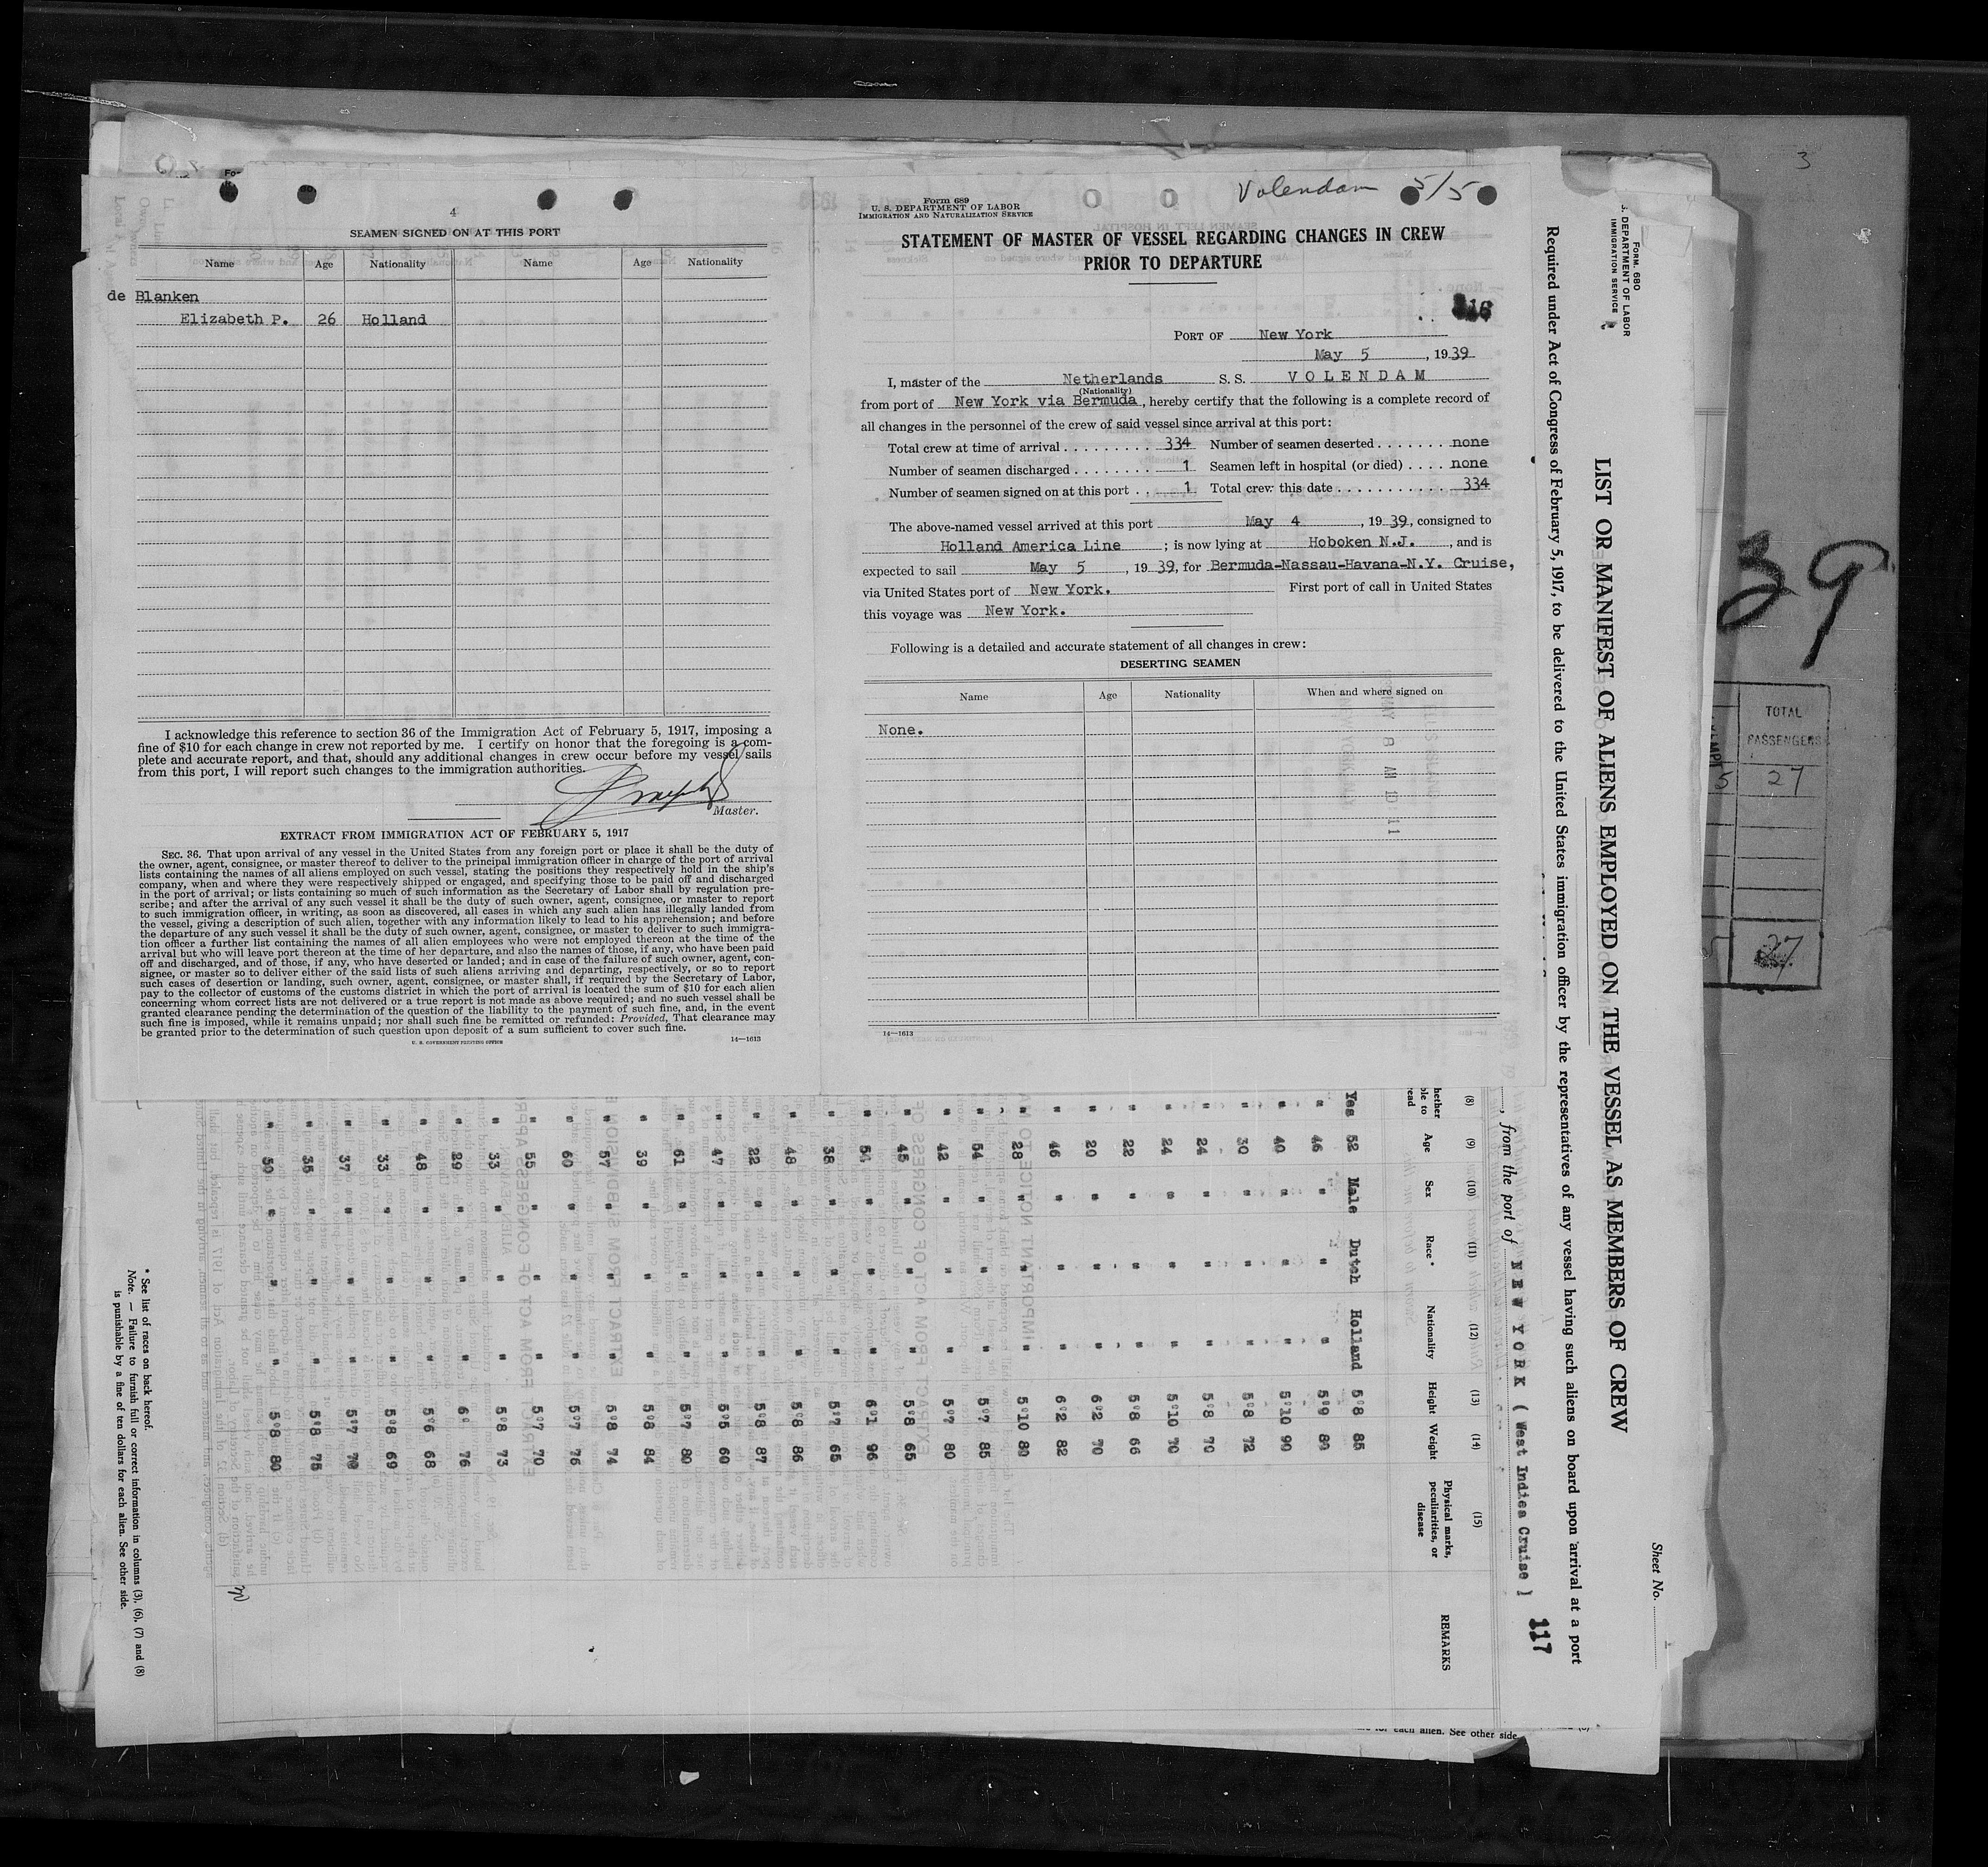 4
SEAMEN SIGNED ON AT THIS PORT
Name Age Nationality Name Age Nationality
de Blanken
Elizabeth P. 26 Holland
I acknowledge this reference to section 36 of the Immigration Act of February 5, 1917, imposing a
fine of $10 for each change in crew not reported by me. I certify on honor that the foregoing is a com-
plete and accurate report, and that, should any additional changes in crew occur before my vessel sails
from this port, I will report such changes to the immigration authorities.
Master.
EXTRACT FROM IMMIGRATION ACT OF FEBRUARY 5, 1917
SEC. 36. That upon arrival of any vessel in the United States from any foreign port or place it shall be the duty of
the owner, agent, consignee, or master thereof to deliver to the principal immigration officer in charge of the port of arrival
lists containing the names of all aliens employed on such vessel, stating the positions they respectively hold in the ship's
company, when and where they were respectively shipped or engaged, and specifying those to be paid off and discharged
in the port of arrival; or lists containing so much of such information as the Secretary of Labor shall by regulation pre-
scribe; and after the arrival of any such vessel it shall be the duty of such owner, agent, consignee, or master to report
to such immigration officer, in writing, as soon as discovered, all cases in which any such alien has illegally landed from
the vessel, giving a description of such alien, together with any information likely to lead to his apprehension; and before
the departure of any such vessel it shall be the duty of such owner, agent, consignee, or master to deliver to such immigra-
tion officer a further list containing the names of all alien employees who were not employed thereon at the time of the
arrival but who will leave port thereon at the time of her departure, and also the names of those, if any, who have been paid
off and discharged, and of those, if any, who have deserted or landed; and in case of the failure of such owner, agent, con-
signee, or master so to deliver either of the said lists of such aliens arriving and departing, respectively, or so to report
such cases of desertion or landing, such owner, agent, consignee, or master shall, if required by the Secretary of Labor,
pay to the collector of customs of the customs district in which the port of arrival is located the sum of $10 for each alien
concerning whom correct lists are not delivered or a true report is not made as above required; and no such vessel shall be
granted clearance pending the determination of the question of the liability to the payment of such fine, and, in the event
such fine is imposed, while it remains unpaid; nor shall such fine be remitted or refunded: Provided, That clearance may
be granted prior to the determination of such question upon deposit of a sum sufficient to cover such fine.
U. S. GOVERNMENT PRINTING OFFICE 14—1613
Volendam 5/5
Form 689
U. S. DEPARTMENT OF LABOR
IMMIGRATION AND NATURALIZATION SERVICE
STATEMENT OF MASTER OF VESSEL REGARDING CHANGES IN CREW
PRIOR TO DEPARTURE
116
PORT OF New York
May 5, 1939
I, master of the Netherlands S. S. VOLENDAM
(Nationality)
from port of New York via Bermuda, hereby certify that the following is a complete record of
all changes in the personnel of the crew of said vessel since arrival at this port:
Total crew at time of arrival . . . . . . . . . 334 Number of seamen deserted . . . . . . . none
Number of seamen discharged . . . . . . . . 1 Seamen left in hospital (or died) . . . . none
Number of seamen signed on at this port . . 1 Total crew this date . . . . . . . . . . . . 334
The above-named vessel arrived at this port May 4, 1939, consigned to
Holland America Line; is now lying at Hoboken N.J., and is
expected to sail May 5, 1939, for Bermuda-Nassau-Havana-N.Y. Cruise,
via United States port of New York. First port of call in United States
this voyage was New York.
Following is a detailed and accurate statement of all changes in crew:
DESERTING SEAMEN
Name Age Nationality When and where signed on
None.
MAY 8 AM 10 11
14—1613
FORM 680
U. S. DEPARTMENT OF LABOR
IMMIGRATION SERVICE
Sheet No.
LIST OR MANIFEST OF ALIENS EMPLOYED ON THE VESSEL AS MEMBERS OF CREW
Required under Act of Congress of February 5, 1917, to be delivered to the United States immigration officer by the representatives of any vessel having such aliens on board upon arrival at a port
, from the port of NEW YORK ( West Indies Cruise )
117
(8) (9) (10) (11) (12) (13) (14) (15)
hether ble to read Age Sex Race * Nationality Height Weight Physical marks, peculiarities, or disease REMARKS
Yes 52 Male Dutch Holland 5°8 85
" 46 " " " 5°9 80
" 40 " " " 5°10 90
" 30 " " " 5°8 72
" 24 " " " 5°8 70
" 24 " " " 5°10 70
" 22 " " " 5°8 66
" 20 " " " 6°2 70
" 46 " " " 6°2 82
" 28 " " " 5°10 80
" 54 " " " 5°7 85
" 42 " " " 5°7 80
" 45 " " " 5°8 65
" 54 " " " 6°1 96
" 38 " " " 5°7 65
" 48 " " " 5°8 86
" 22 " " " 5°8 87
" 47 " " " 5°5 60
" 61 " " " 5°7 80
" 39 " " " 5°8 84
" 57 " " " 5°8 74
" 60 " " " 5°7 76
" 55 " " " 5°7 70
" 33 " " " 5°8 73
" 29 " " " 6° 76
" 48 " " " 5°6 68
" 33 " " " 5°8 69
" 37 " " " 5°7 70
" 35 " " " 5°8 75
" 50 " " " 5°8 80
* See list of races on back hereof.
Note. — Failure to furnish full or correct information in columns (3), (6), (7) and (8)
is punishable by a fine of ten dollars for each alien. See other side.
for each alien. See other side
3
39
TOTAL
PASSENGERS
5 27
27